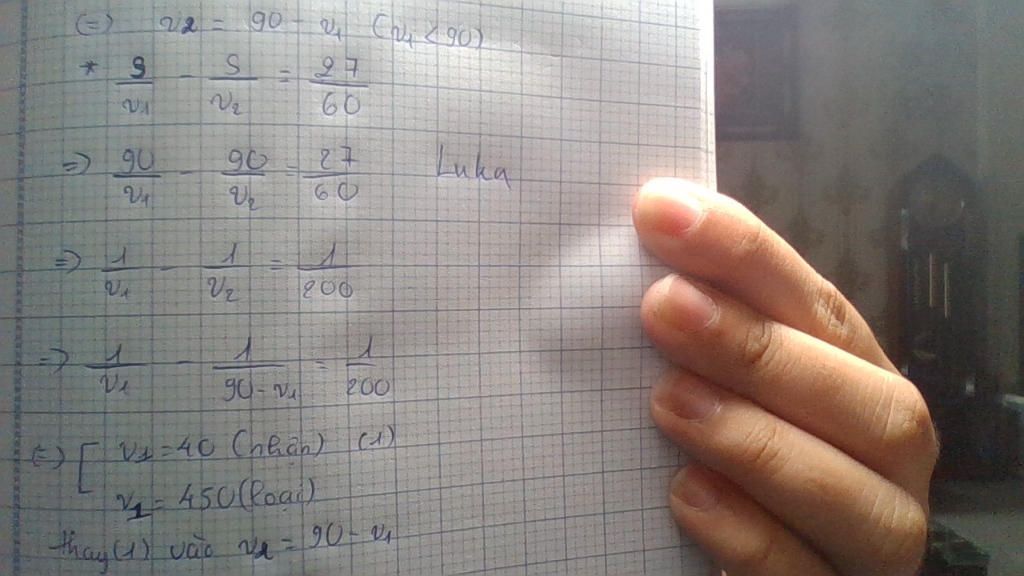 (=) v2 = 90 - v1 (v1 < 90)
* S/v1 - S/v2 = 27/60
=> 90/v1 - 90/v2 = 27/60 Luka
=> 1/v1 - 1/v2 = 1/200
=> 1/v1 - 1/(90-v1) = 1/200
(=) [ v1 = 40 (nhận) (1)
v1 = 450 (loại)
thay (1) vào v2 = 90 - v1